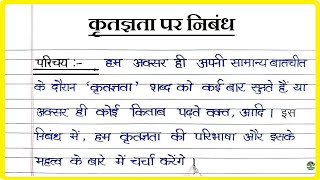 कृतज्ञता पर निबंध
परिचय :- हम अक्सर ही अपनी सामान्य बातचीत
के दौरान 'कृतज्ञता' शब्द को कई बार सुनते हैं, या
अक्सर ही कोई किताब पढ़ते वक्त, आदि। इस
निबंध में, हम कृतज्ञता की परिभाषा और इसके
महत्व के बारे में चर्चा करेंगे।